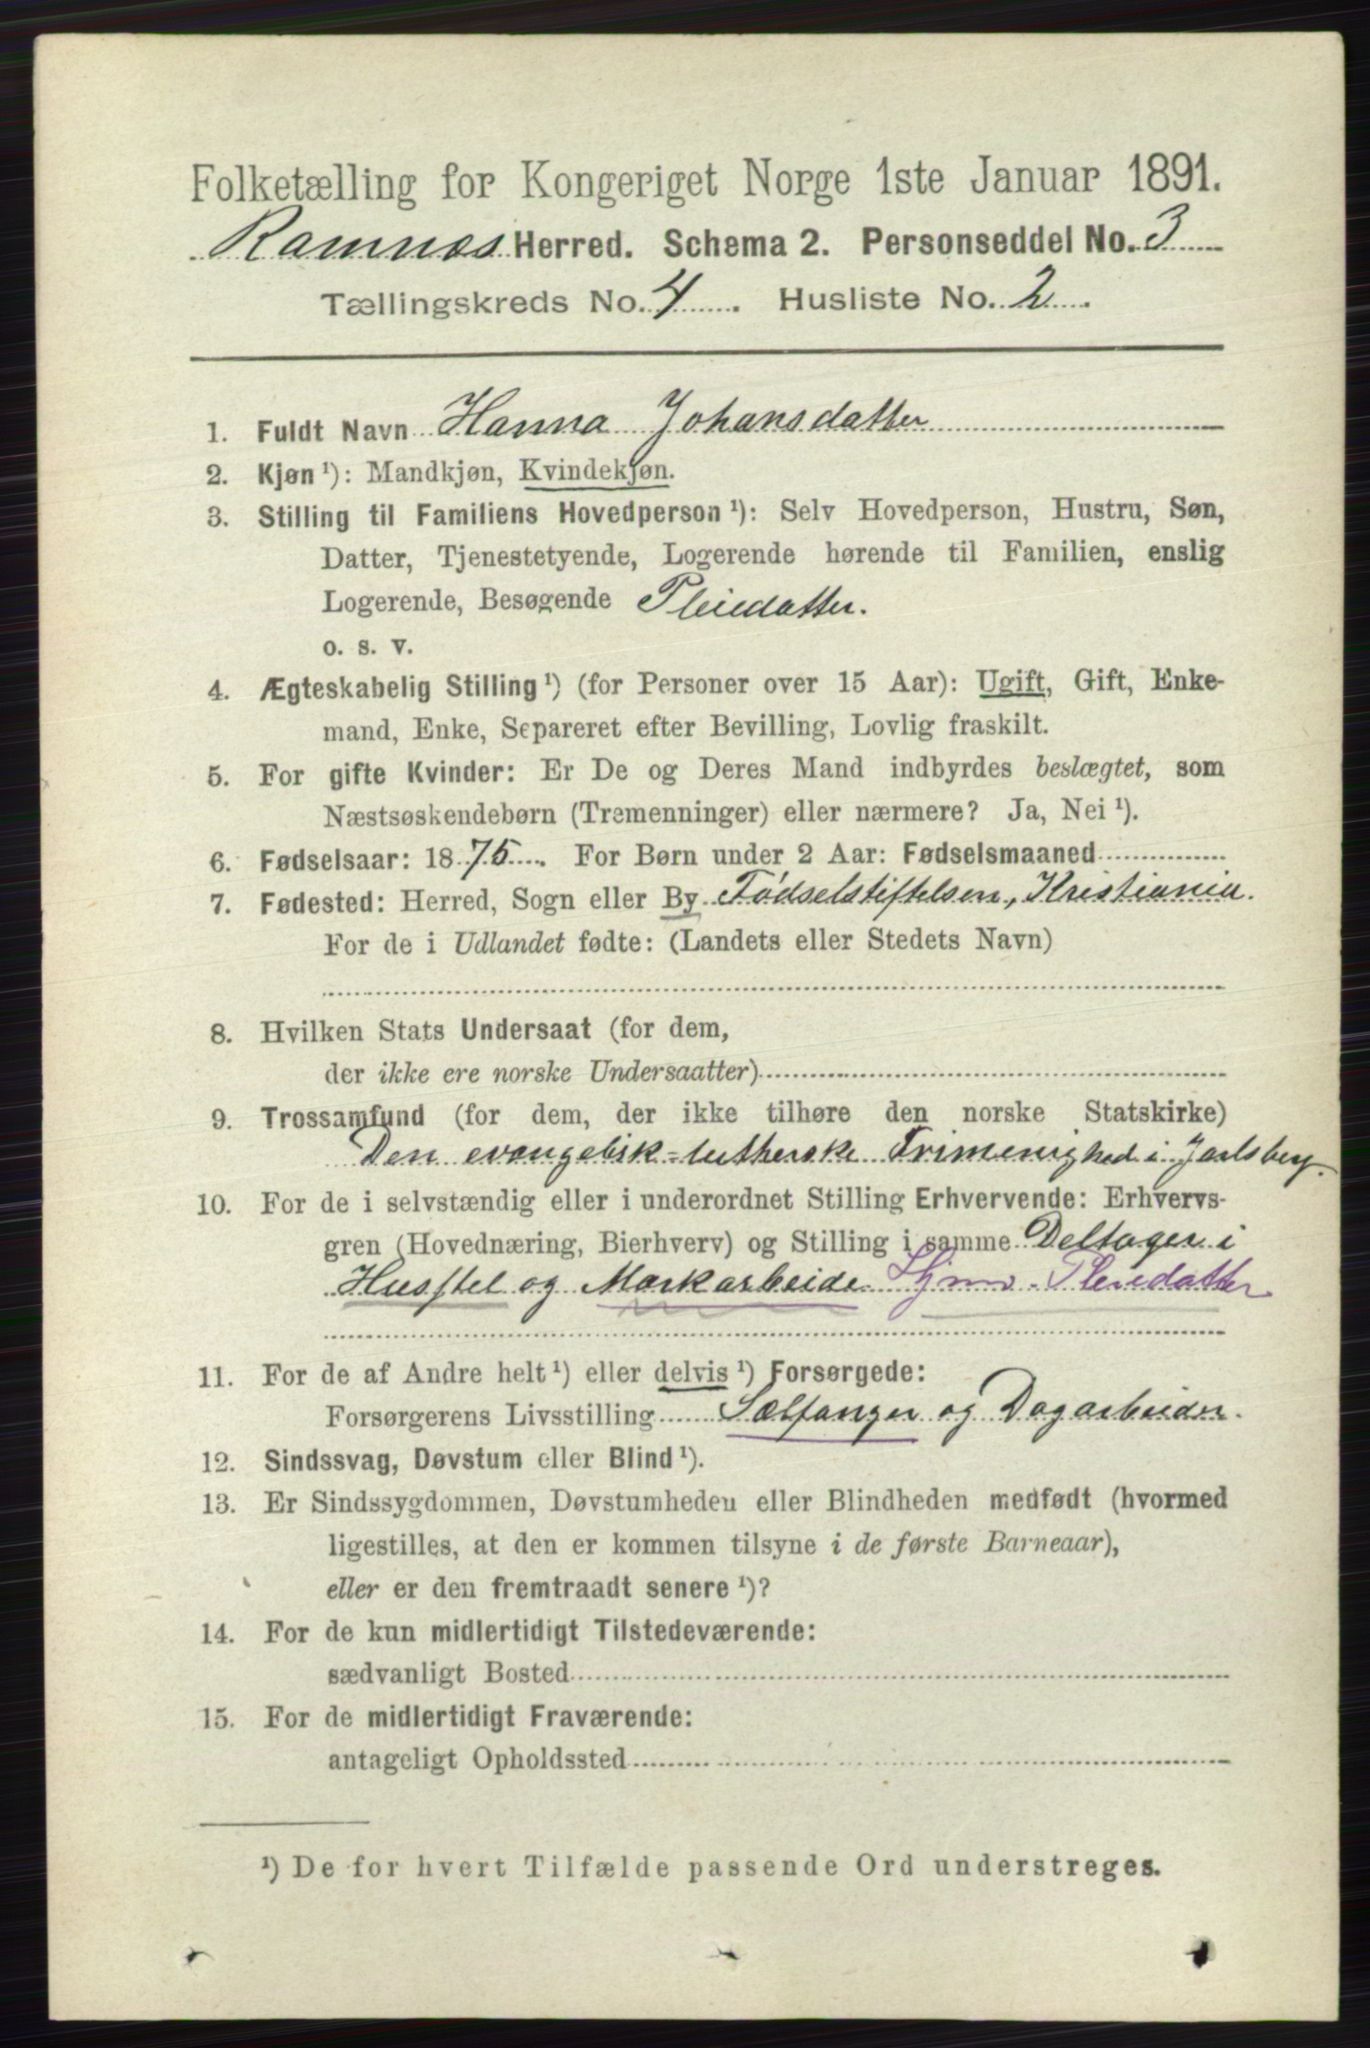 Folketælling for Kongeriget Norge 1ste Januar 1891.
Ramnes Herred. Schema 2. Personseddel No. 3
Tællingskreds No. 4. Husliste No. 2.
1. Fuldt Navn Hanna Johansdatter
2. Kjøn ¹): Mandkjøn, Kvindekjøn.
3. Stilling til Familiens Hovedperson ¹): Selv Hovedperson, Hustru, Søn,
Datter, Tjenestetyende, Logerende hørende til Familien, enslig
Logerende, Besøgende Pleiedatter.
o. s. v.
4. Ægteskabelig Stilling ¹) (for Personer over 15 Aar): Ugift, Gift, Enke-
mand, Enke, Separeret efter Bevilling, Lovlig fraskilt.
5. For gifte Kvinder: Er De og Deres Mand indbyrdes beslægtet, som
Næstsøskendebørn (Tremenninger) eller nærmere? Ja, Nei ¹).
6. Fødselsaar: 1875. For Børn under 2 Aar: Fødselsmaaned
7. Fødested: Herred, Sogn eller By Fødselstiftelsen, Kristiania.
For de i Udlandet fødte: (Landets eller Stedets Navn)
8. Hvilken Stats Undersaat (for dem,
der ikke ere norske Undersaatter)
9. Trossamfund (for dem, der ikke tilhøre den norske Statskirke)
Den evangelisk-lutherske Frimenighed i Jarlsberg.
10. For de i selvstændig eller i underordnet Stilling Erhvervende: Erhvervs-
gren (Hovednæring, Bierhverv) og Stilling i samme Deltager i
Husstel og Markarbeide Pleiedatter
11. For de af Andre helt ¹) eller delvis ¹) Forsørgede:
Forsørgerens Livsstilling Sælfanger og Dagarbeider.
12. Sindssvag, Døvstum eller Blind ¹).
13. Er Sindssygdommen, Døvstumheden eller Blindheden medfødt (hvormed
ligestilles, at den er kommen tilsyne i de første Barneaar),
eller er den fremtraadt senere ¹)?
14. For de kun midlertidigt Tilstedeværende:
sædvanligt Bosted
15. For de midlertidigt Fraværende:
antageligt Opholdssted
¹) De for hvert Tilfælde passende Ord understreges.